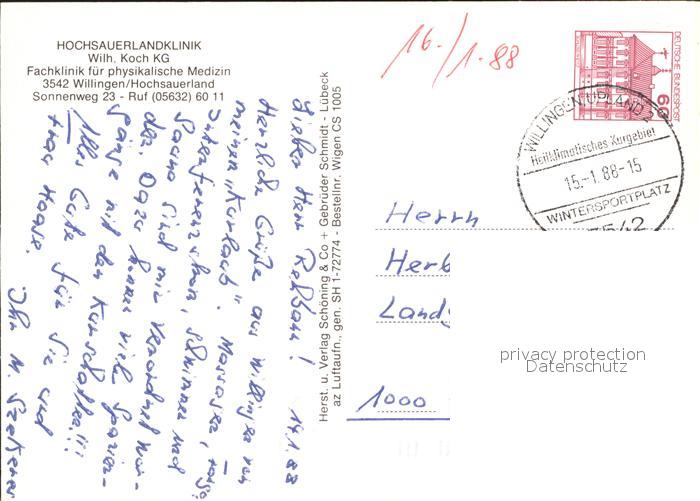 HOCHSAUERLANDKLINIK
Wilh. Koch KG
Fachklinik für physikalische Medizin
3542 Willingen/Hochsauerland
Sonnenweg 23 - Ruf (05632) 60 11
14.1.88
Lieber Herr
Herzliche Grüße aus Willingen von
meinem „Kurlaub". Massagen,
Interferenzstrom, schwimmen und
Sauna sind mir verordnet wor-
den. Dazu kommen viele Spazier-
gänge mit den Kurschatten!!!
Alles Gute für Sie und
Frau Haase.
Ihr M.
Herst. u. Verlag Schöning & Co + Gebrüder Schmidt - Lübeck
az Luftaufn., gen. SH 1-72774 - Bestellnr. Wigen CS 1005
16./1.88
DEUTSCHE BUNDESPOST
60
WILLINGEN, UPLAND 2
Heilklimatisches Kurgebiet
15.-1.88-15
WINTERSPORTPLATZ
3542
Herrn
Herb
Landg
1000
privacy protection
Datenschutz